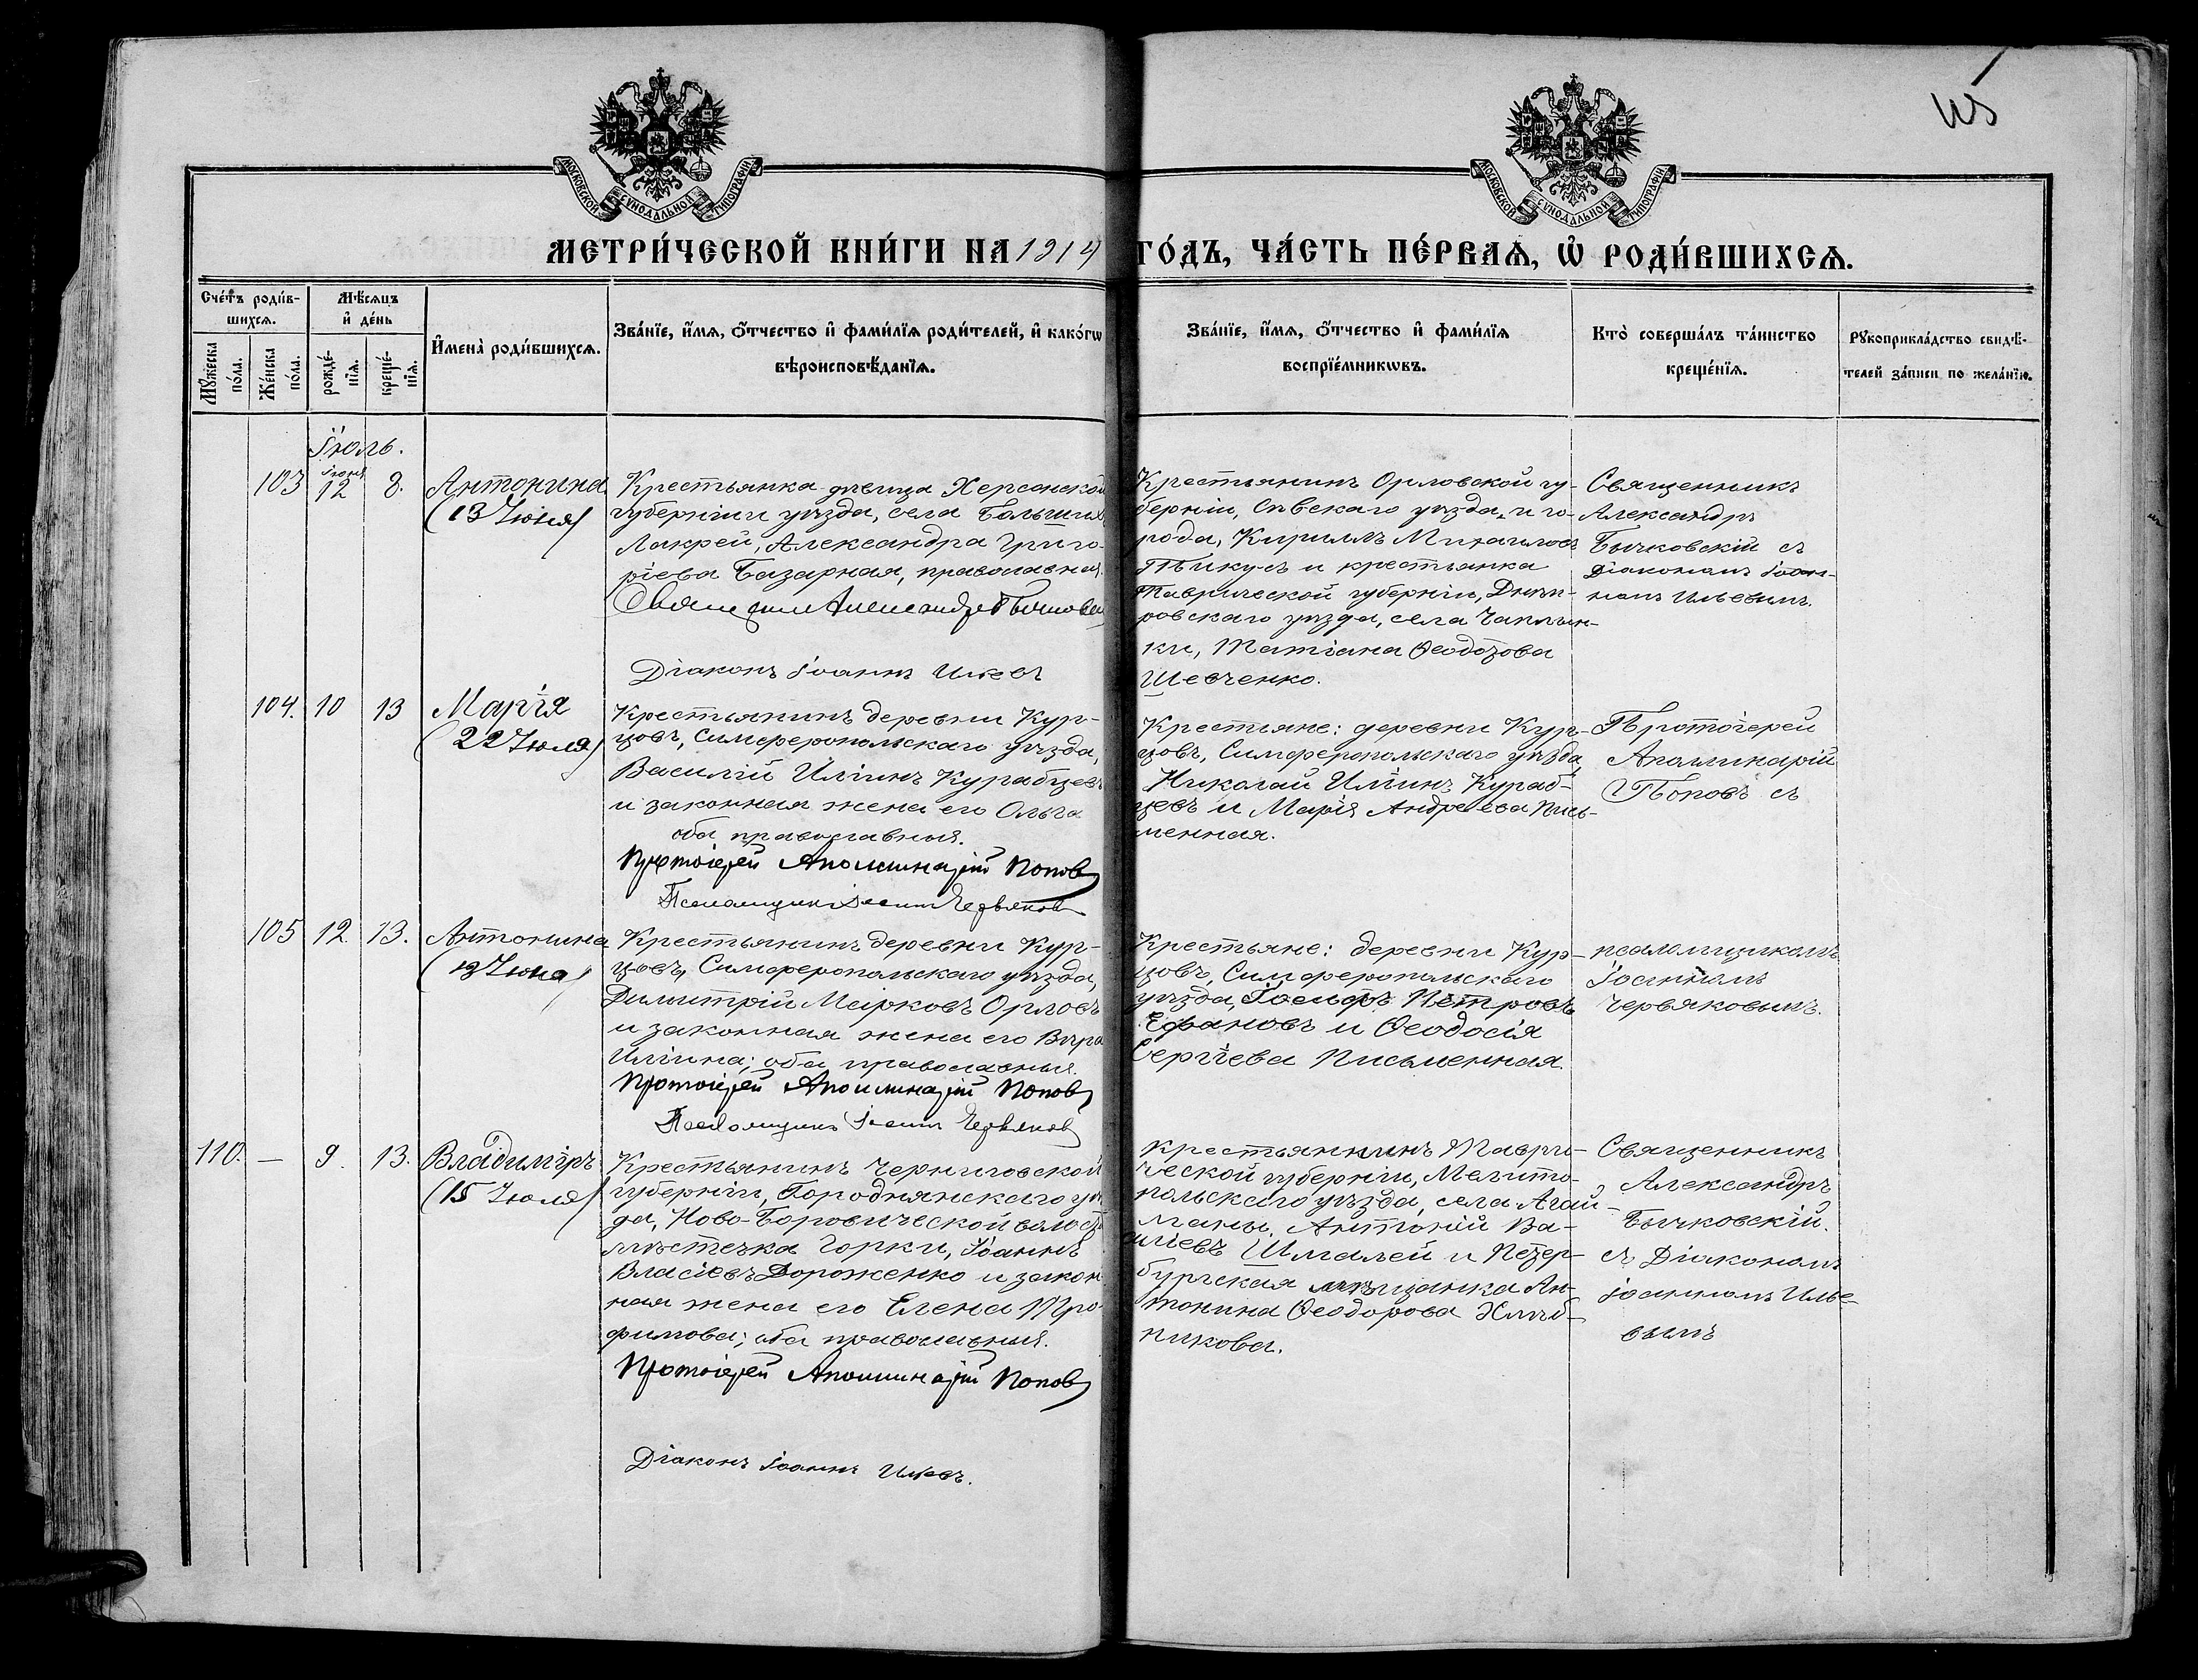 из
МОСКОВСКОЙ СѴНОДАЛЬНОЙ ТИПОГРАФІИ
МОСКОВСКОЙ СѴНОДАЛЬНОЙ ТИПОГРАФІИ
МЕТРИ́ЧЕСКОЙ КНИ́ГИ НА 1914 ГО́ДЪ, ЧА́СТЬ ПЕ́РВАѦ, Ѡ҆ РОДИ́ВШИХСѦ.
Сче́тъ роди́в-
шихсѧ.
Мꙋ́жеска по́ла.
Же́нска по́ла.
Мѣ́сѧцъ
и҆ де́нь
рожде́-нїѧ.
креще́-нїѧ.
И҆мена̀ роди́вшихсѧ.
Зва́нїе, и҆́мѧ, ѻ҆́тчество и҆ фами́лїѧ роди́телей, и҆ како́гѡ
вѣроисповѣ́данїѧ.
Зва́нїе, и҆́мѧ, ѻ҆́тчество и҆ фами́лїѧ
воспрїе́мникѡвъ.
Кто̀ соверша́лъ та́инство
креще́нїѧ.
Рꙋкоприкла́дство свидѣ́-
телей за́писи по жела́нїю.
Іюль.
103 Іюня 12 8. Антонина
(13 Іюня)
Крестьянка девица Херсонской
губерніи и уѣзда, села Большихъ
Лакрей, Александра Григо-
ріева Базарная, православная.
Священникъ Александръ Бычковскій
Діаконъ Іоаннъ Ильевъ
Крестьянинъ Орловской гу-
берніи, Сѣвскаго уѣзда, и го-
рода, Кириллъ Михаиловъ
и крестьянка
Таврической губерніи, Днѣп-
ровскаго уѣзда, села Чаплын-
ки, Татіана Ѳеодозова
Шевченко.
Священникъ
Александръ
Бычковскій съ
Діакономъ Іоан-
номъ Ильевымъ.
104. 10 13 Марія
(22 Іюля)
Крестьянинъ деревни Кур-
цовъ, Симферопольскаго уѣзда,
Василій Иліинъ Курабцевъ
и законная жена его Ольга
оба православныя.
Протоіерей Аполлинарій Поповъ
Псаломщикъ Іоаннъ Червяковъ
Крестьяне: деревни Кур-
цовъ, Симферопольскаго уѣзда,
Николай Иліинъ Кураб-
цевъ и Марія Андреева Пись-
менная.
Протоіерей
Аполлинарій
Поповъ съ
105 12. 13. Антонина
(13 Іюня)
Крестьянинъ деревни Кур-
цовъ, Симферопольскаго уѣзда,
Димитрій Марковъ Орловъ
и законная жена его Вѣра
Иліина; оба православныя.
Протоіерей Аполлинарій Поповъ
Псаломщикъ Іоаннъ Червяковъ
Крестьяне: деревни Кур-
цовъ, Симферопольскаго
уѣзда, Іосифъ Петровъ
Ефановъ и Ѳеодосія
Сергіева Письменная.
псаломщикомъ
Іоанномъ
Червяковымъ.
110. — 9. 13. Владиміръ
(15 Іюля)
Крестьянинъ Черниговской
губерніи, Городнянскаго уѣз
да, Ново-Боровической волости
мѣстечка Горки, Іоаннъ
Власіевъ Дороженко и закон
ная жена его Елена Тро-
фимова; оба православныя.
Протоіерей Аполлинарій Поповъ
Діаконъ Іоаннъ Ильевъ.
Крестьяннинъ Таври-
ческой губерніи, Мелито-
польскаго уѣзда, села Агай-
маны, Антоній Ва-
Шмалей и Петер-
бургская мѣщанка Ан-
тонина Ѳеодорова Хлѣб-
никова.
Священникъ
Александръ
Бычковскій.
съ Діакономъ
Іоанномъ Илье-
вымъ